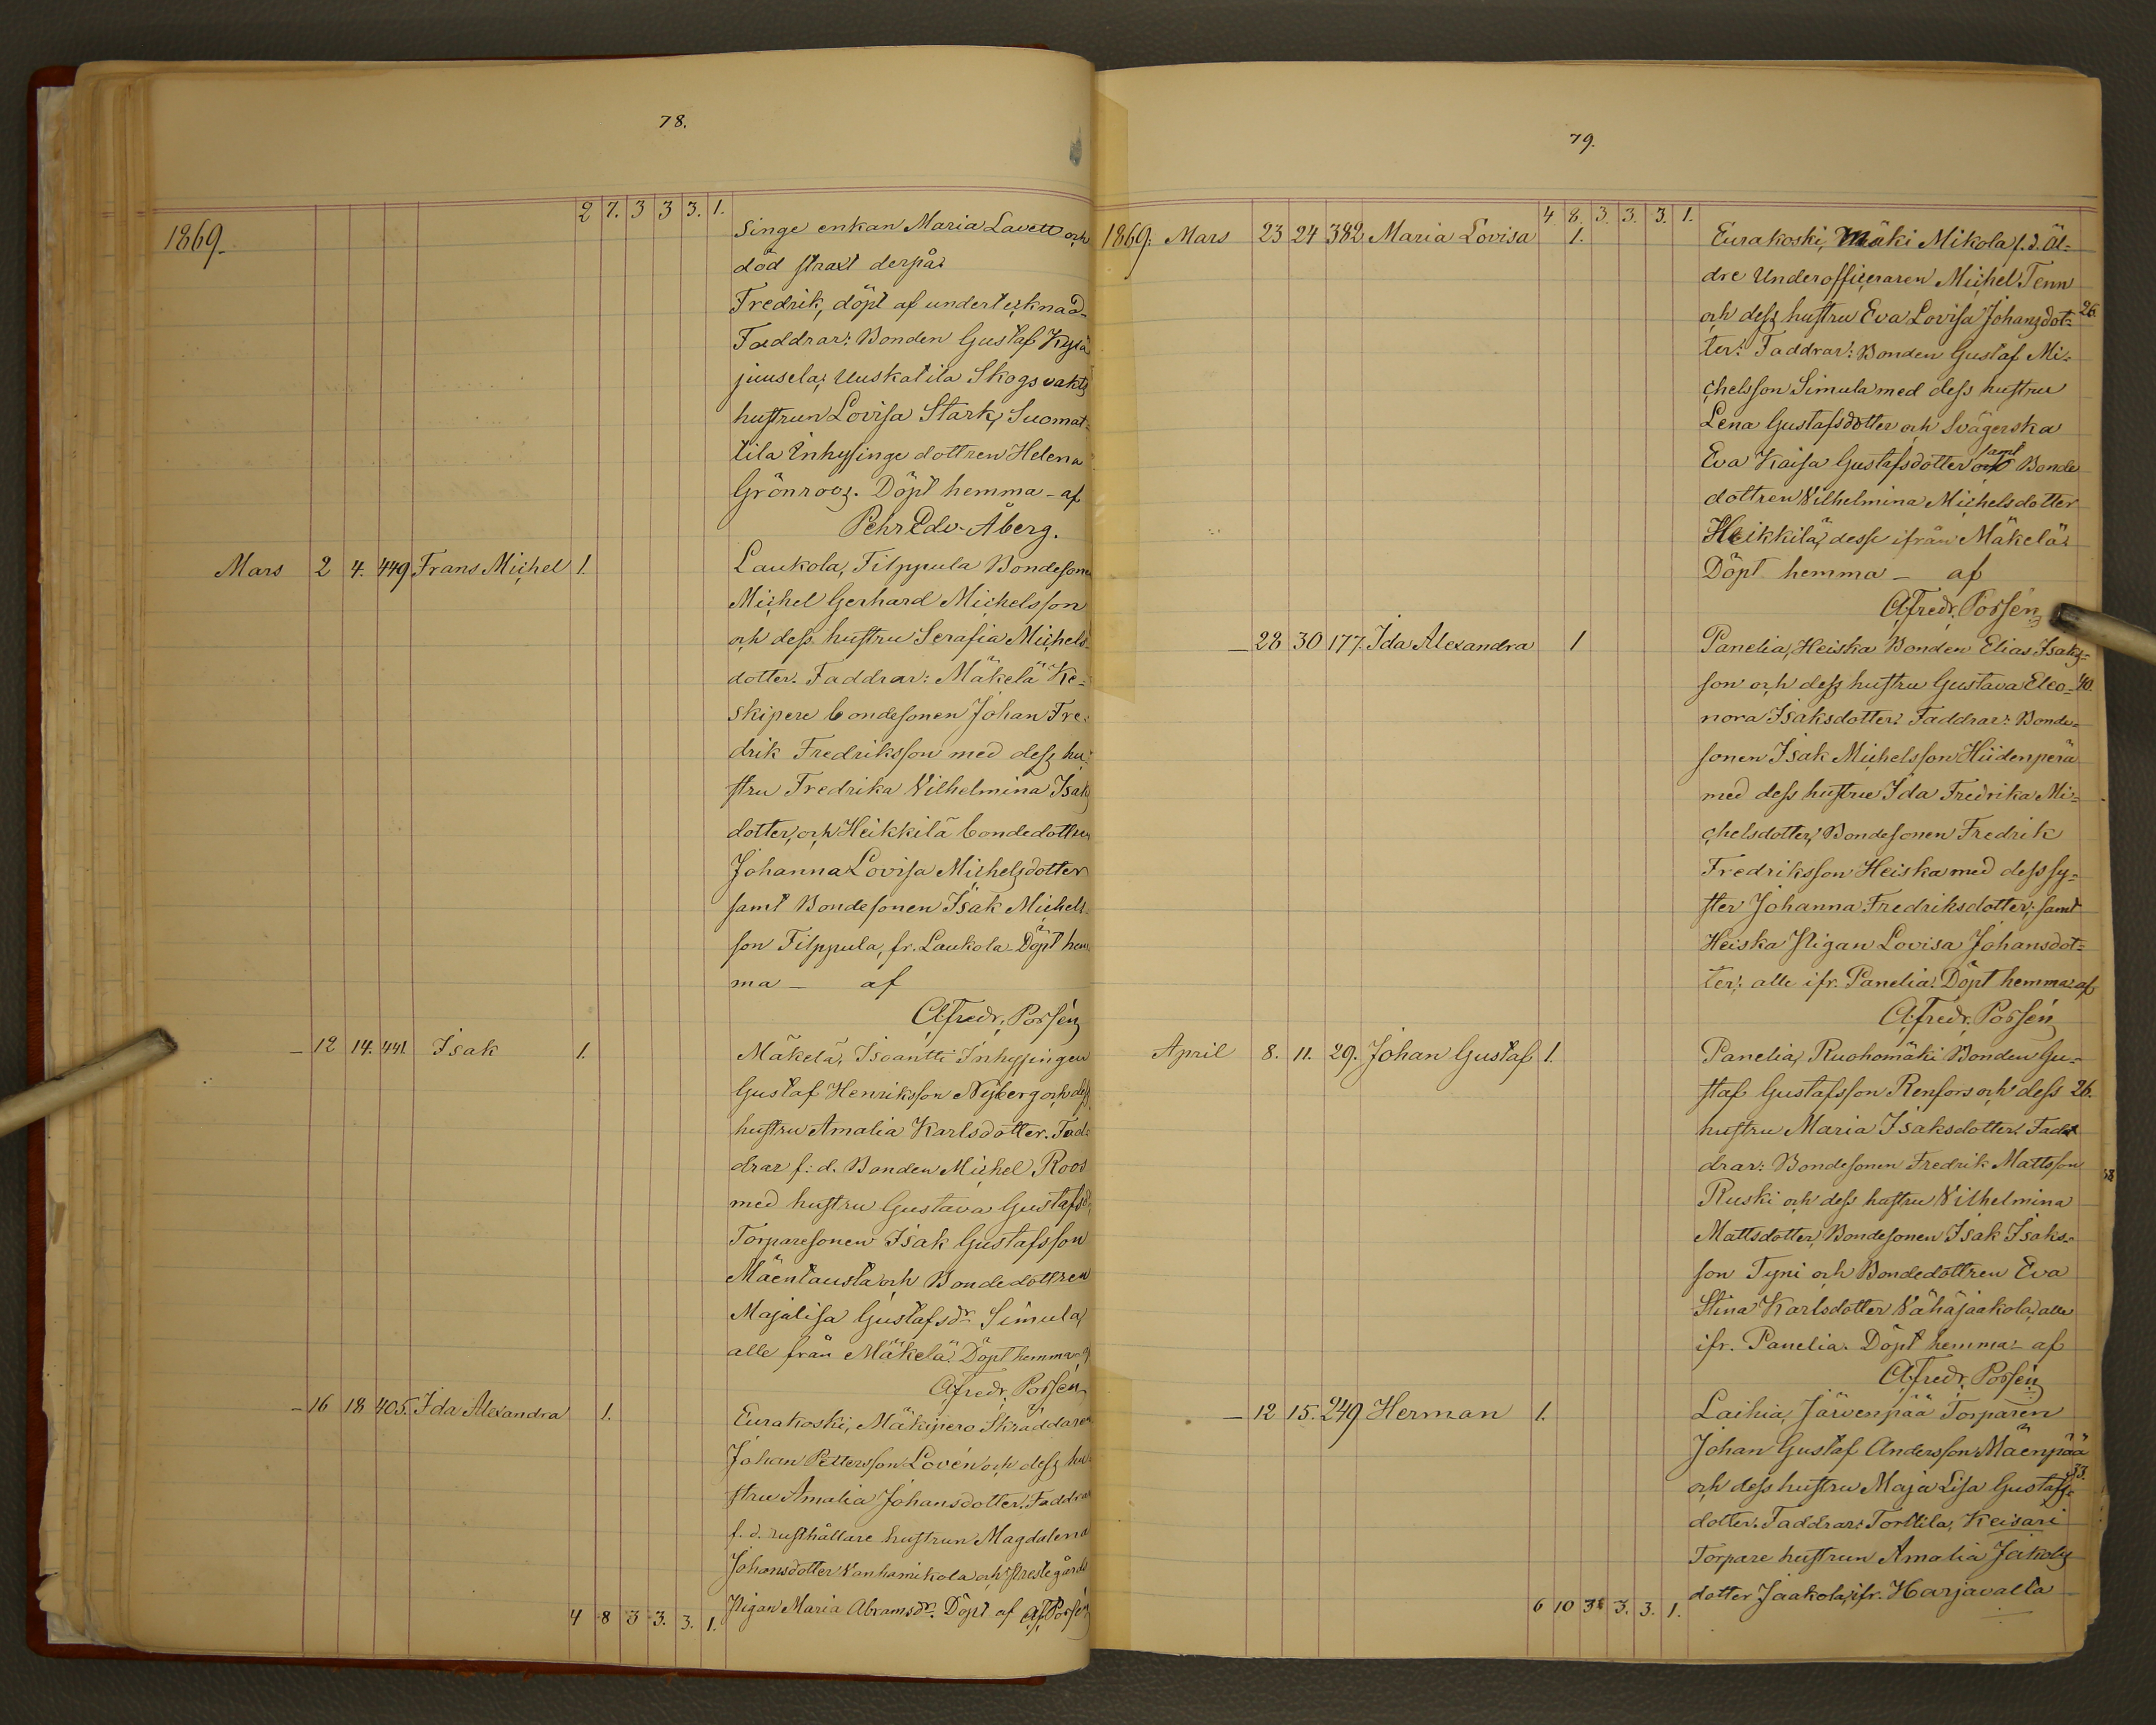 78.
2 7. 3 3 3. 1.
1869.
Singe enkan Maria Lavett och
död straxt derpå.
Fredrik, döpt af undertecknad.
Faddrar: Bonden Gustaf Kylä
juusela, Uuskatila Skogsvakts
hustrun Lovisa Stark, Suomat=
tila Inhysinge dottren Helena
Grönroos. Döpt hemma – af
Pehr Edv. Åberg.
Mars 2 4. 449 Frans Michel 1. Laukola, Filppula Bondesonen
Michel Gerhard Michelsson
och dess hustru Serafia Michels
dotter. Faddrar: Mäkelä Ke=
skipere bondesonen Johan Fre=
drik Fredriksson med dess hu=
stru Fredrika Vilhelmina Isaks
dotter, och Heikkilä bondedottren
Johanna Lovisa Michelsdotter
samt Bondesonen Isak Michels
son Filppula, fr. Laukola. Döpt hem
ma – af
A. Fredr. Porsén
– 12 14. 441. Isak 1. Mäkelä, Isoantti Inhysingen
Gustaf Henriksson Nyberg och dess
hustru Amalia Karlsdotter. Fad=
drar f. d. Bonden Michel Roos
med hustru Gustava Gustafsd.
Torparesonen Isak Gustafsson
Mäentausta och Bondedottren
Majalisa Gustafsdr Simula,
alle från Mäkelä. Döpt hemma af
A. Fredr. Porsén
– 16 18 405. Ida Alexandra 1. Eurakoski, Mäkipero Skräddaren
Johan Pettersson Lovén och dess hu
stru Amalia Johansdotter. Faddrar
f. d. rusthållare hustrun Magdalena
Johansdotter Vanhamikola och Prestegårds
Pigan Maria Abramsdr. Döpt af A. F. Porsén
4 8 3 3. 3. 1.
79.
4 8. 3. 3. 3. 1.
1869. Mars 23 24 382 Maria Lovisa 1. Eurakoski, Mäki Mikola f. d. Äl=
dre Underofficeraren Michel Tenn
och dess hustru Eva Lovisa Johansdot= 26.
ter. Faddrar: Bonden Gustaf Mi=
chelsson Simula med dess hustru
Lena Gustafsdotter och Svägerska
Eva Kaisa Gustafsdotter samt Bonde
dottren Vilhelmina Michelsdotter
Heikkilä, desse ifrån Mäkelä.
Döpt hemma – af
A. Fredr. Porsén
– 28 30 177. Ida Alexandra 1 Panelia, Heiska Bonden Elias Isaks=
son och dess hustru Gustava Eleo= 40.
nora Isaksdotter. Faddrar: Bonde=
sonen Isak Michelsson Hiidenperä
med dess hustru Ida Fredrika Mi=
chelsdotter, Bondesonen Fredrik
Fredriksson Heiska med dess sy=
ster Johanna Fredriksdotter, samt
Heiska Pigan Lovisa Johansdot=
ter, alle ifr. Panelia. Döpt hemma af
A. Fredr. Porsén
April 8. 11. 29. Johan Gustaf 1. Panelia, Ruohomäki Bonden Gu=
staf Gustafsson Renfors och dess 26.
hustru Maria Isaksdotter. Fad
drar: Bondesonen Fredrik Mattsson
Ruski och dess hustru Vilhelmina
Mattsdotter, Bondesonen Isak Isaks=
son Tyni och Bondedottren Eva
Stina Karlsdotter Vähäjaakola, alle
ifr. Panelia. Döpt hemma – af
A. Fredr. Porsén
– 12 15. 249 Herman 1. Laihia, Järvenpää Torparen
Johan Gustaf Andersson Mäenpää
och dess hustru Maja Lisa Gustafs= 33.
dotter. Faddrar: Torttila, Keisari
Torpare hustrun Amalia Jakobs
dotter Jaakola, ifr. Harjavalta
6 10 3 3. 3. 1.